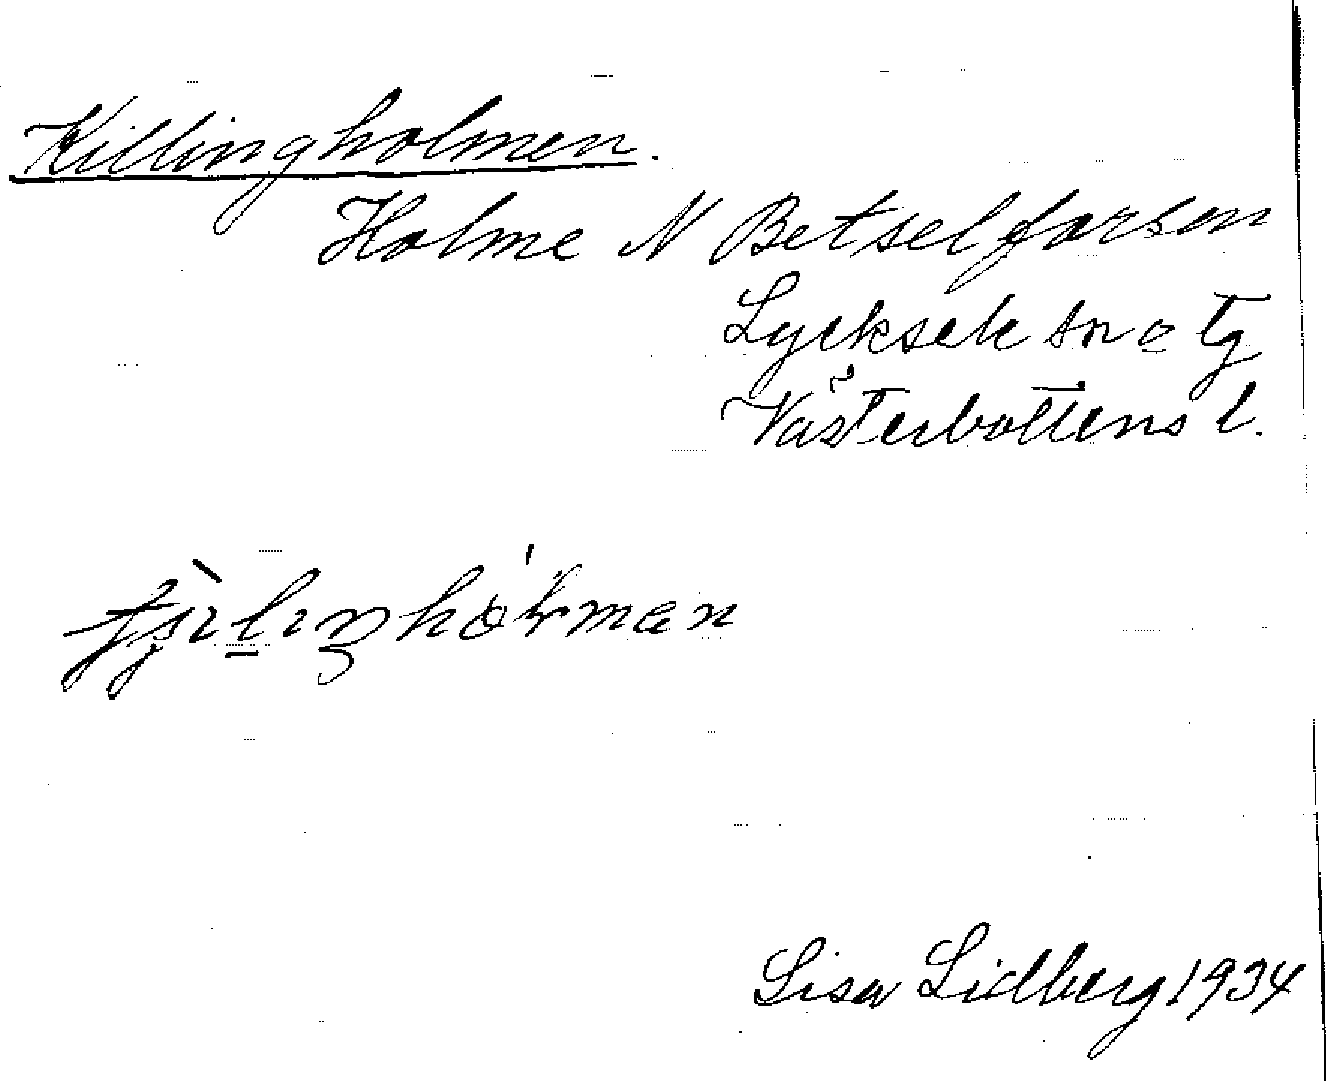 Killingholmen.
Holme N Betselforsen
Lycksele sn o tg
Västerbottens l.
Lisa Lidberg 1934